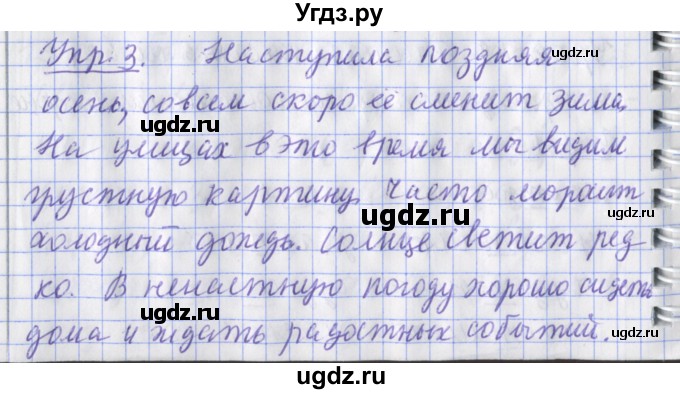 Угдз.ру
Упр. 3. Наступила поздняя
осень, совсем скоро её сменит зима.
На улицах в это время мы видим
грустную картину. Часто моросит
холодный дождь. Солнце светит ред
ко. В ненастную погоду хорошо сидеть
дома и ждать радостных событий.
ugdz.ru
ugdz.ru
ugdz.ru
ugdz.ru
ugdz.ru
ugdz.ru
ugdz.ru
ugdz.ru